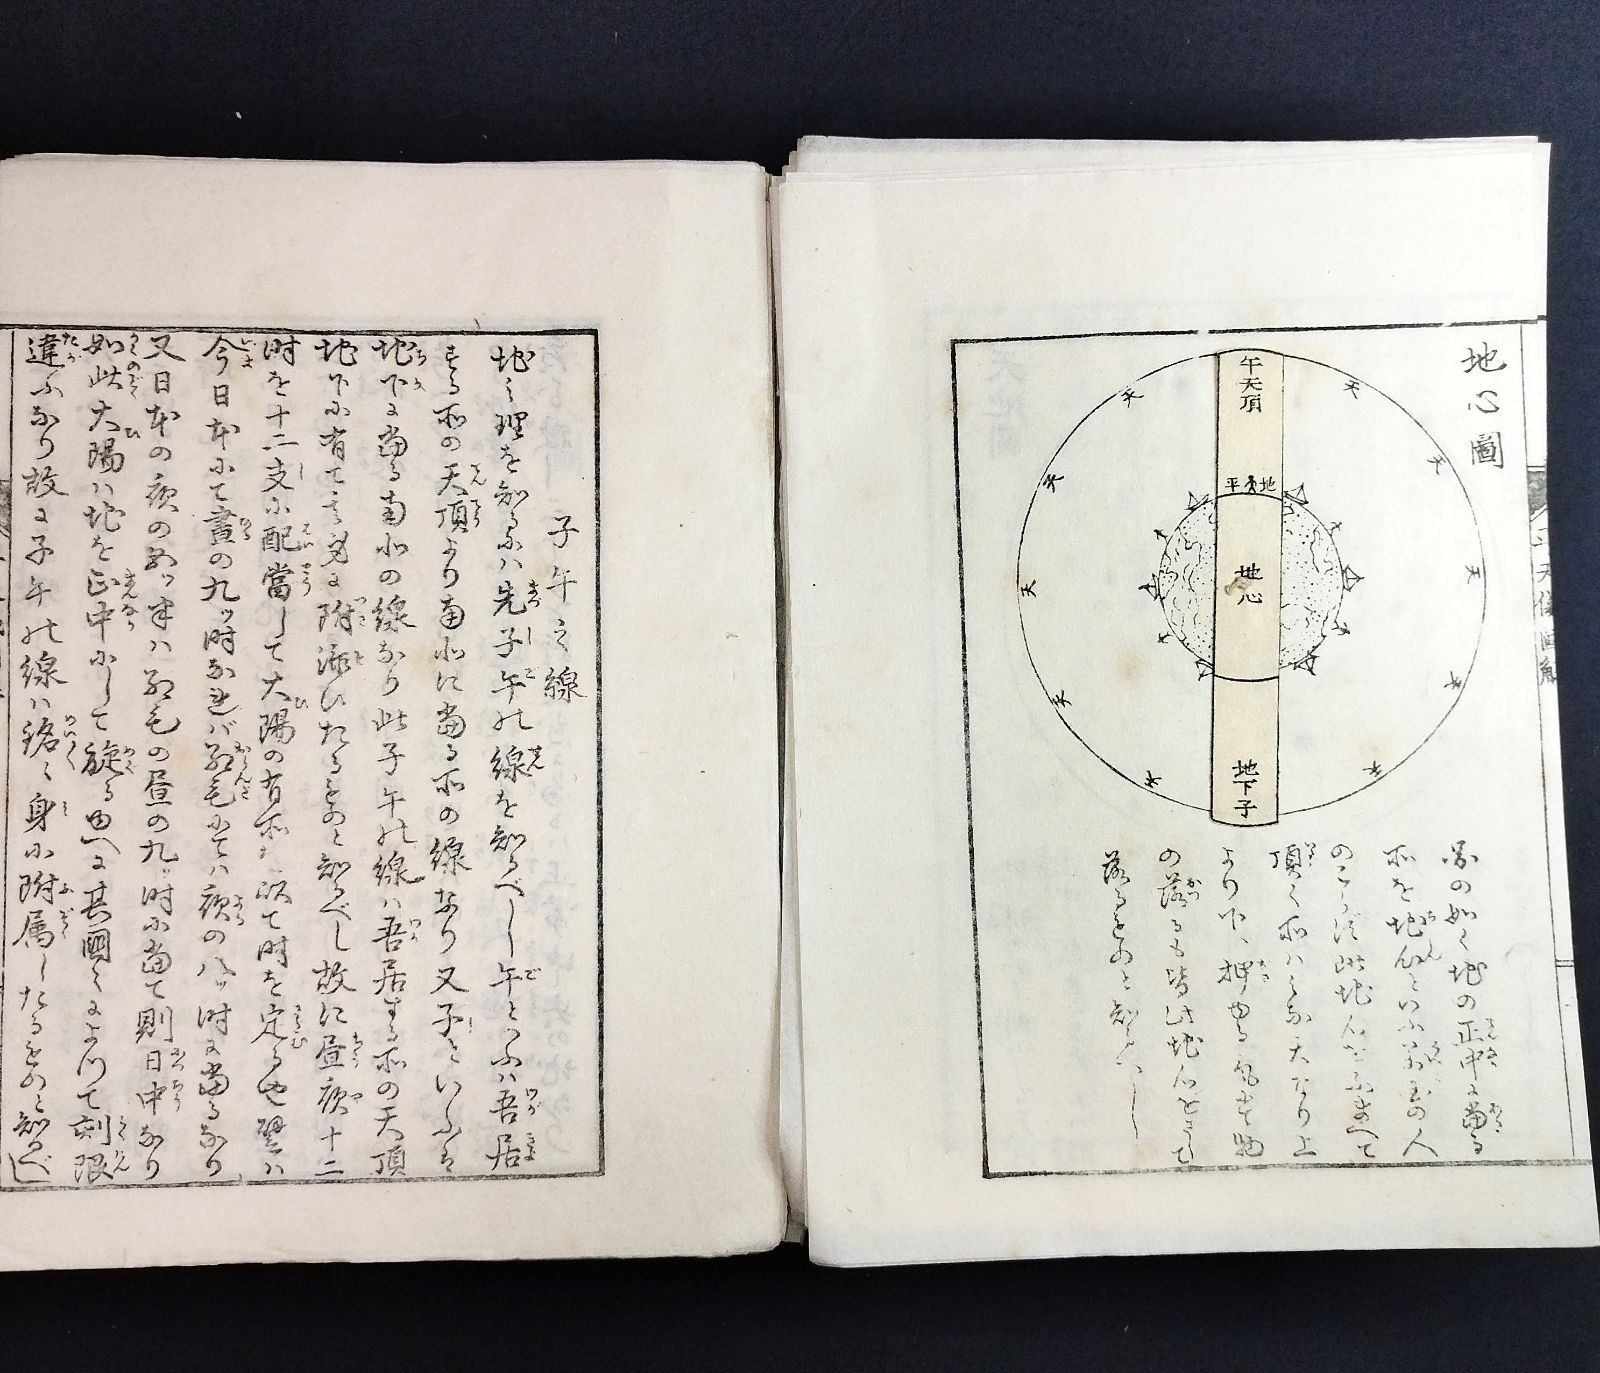 地心圖
午天頂
天
天
天
天
天
天
天
天
天
天
地
平
地心
地下子
圖の如く地の正中に當る
所を地心といふ萬國の人
のこらず此地心をふまへて
頂く所はみな天なり上
より下へ押ゆる氣にて物
の落るも皆此地心をさして
落るものと知るべし
子午之線
地之理を知るには先子午の線を知るべし午といふは吾居
する所の天頂より南北に當る所の線なり又子といふは
地下に當る南北の線なり此子午の線は吾居する所の天頂
地下に有て其身に附添ひたるものと知るべし故に昼夜十二
時を十二支に配當して大陽の有所を以て時を定る也譬は
今日本にて晝の九ッ時なれば紅毛にては夜の八ッ時に當るなり
又日本の夜の五ッ半は紅毛の昼の九ッ時に當て則日中なり
如此大陽は地を正中にして旋る由へに其國々によつて刻限
違ふなり故に子午の線は銘々身に附属したるものと知るべし